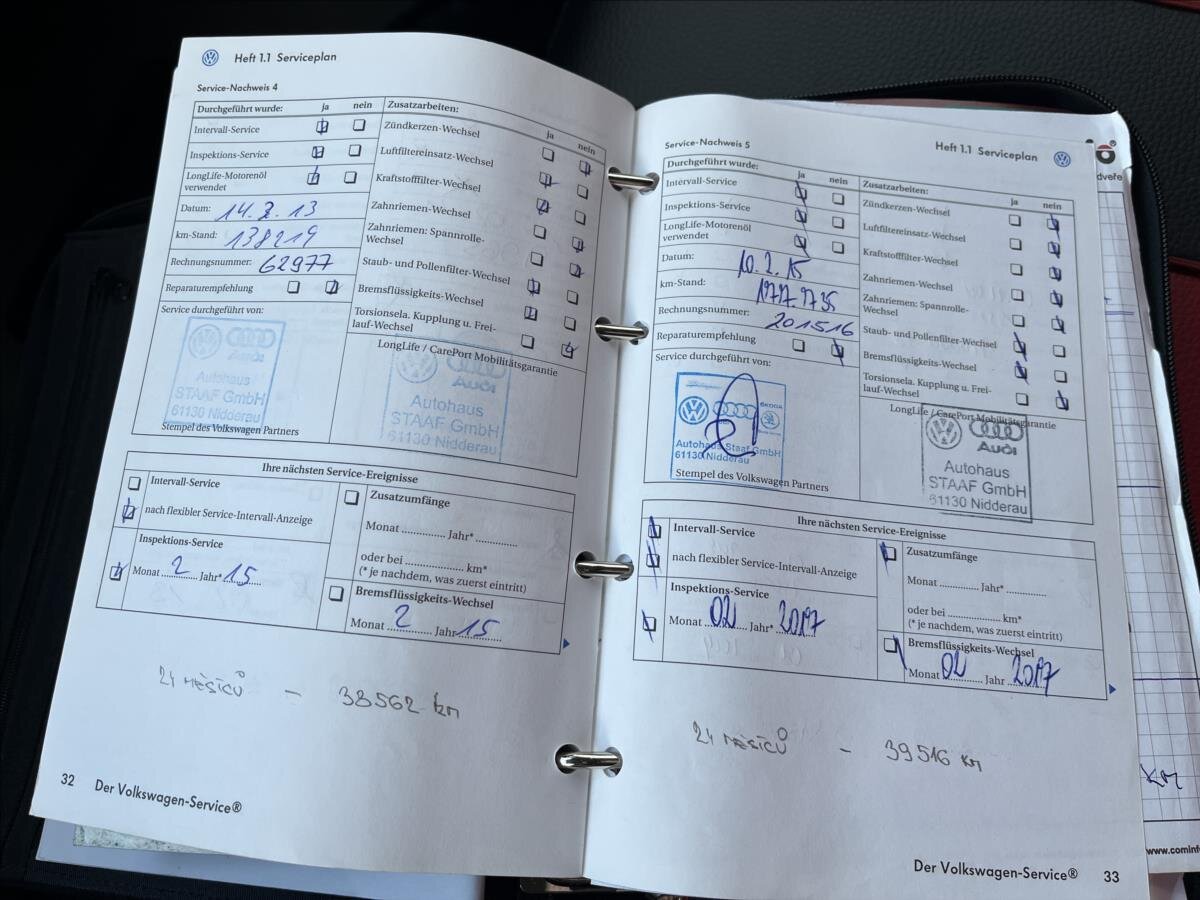 Heft 1.1 Serviceplan
Service-Nachweis 4
Durchgeführt wurde: ja nein
Intervall-Service
Inspektions-Service
LongLife-Motorenöl
verwendet
Datum: 14.2.13
km-Stand: 138219
Rechnungsnummer: 62977
Reparaturempfehlung
Service durchgeführt von:
Audi
Autohaus
STAAF GmbH
61130 Nidderau
Stempel des Volkswagen Partners
Zusatzarbeiten:
ja nein
Zündkerzen-Wechsel
Luftfiltereinsatz-Wechsel
Kraftstofffilter-Wechsel
Zahnriemen-Wechsel
Zahnriemen: Spannrolle-
Wechsel
Staub- und Pollenfilter-Wechsel
Bremsflüssigkeits-Wechsel
Torsionsela. Kupplung u. Frei-
lauf-Wechsel
LongLife / CarePort Mobilitätsgarantie
Audi
Autohaus
STAAF GmbH
61130 Nidderau
Ihre nächsten Service-Ereignisse
Intervall-Service
nach flexibler Service-Intervall-Anzeige
Inspektions-Service
Monat 2 Jahr* 15
Zusatzumfänge
Monat ............... Jahr* ..............
oder bei .................... km*
(* je nachdem, was zuerst eintritt)
Bremsflüssigkeits-Wechsel
Monat 2 Jahr 15
24 MĚSÍCŮ – 38562 km
32 Der Volkswagen-Service®
Heft 1.1 Serviceplan
Service-Nachweis 5
Durchgeführt wurde: ja nein
Intervall-Service
Inspektions-Service
LongLife-Motorenöl
verwendet
Datum: 10.2.15
km-Stand:
Rechnungsnummer: 201516
Reparaturempfehlung
Service durchgeführt von:
ŠKODA
Autohaus Staaf GmbH
61130 Nidderau
Stempel des Volkswagen Partners
Zusatzarbeiten:
ja nein
Zündkerzen-Wechsel
Luftfiltereinsatz-Wechsel
Kraftstofffilter-Wechsel
Zahnriemen-Wechsel
Zahnriemen: Spannrolle-
Wechsel
Staub- und Pollenfilter-Wechsel
Bremsflüssigkeits-Wechsel
Torsionsela. Kupplung u. Frei-
lauf-Wechsel
LongLife / CarePort Mobilitätsgarantie
Audi
Autohaus
STAAF GmbH
61130 Nidderau
Ihre nächsten Service-Ereignisse
Intervall-Service
nach flexibler Service-Intervall-Anzeige
Inspektions-Service
Monat 02 Jahr* 2017
Zusatzumfänge
Monat ............... Jahr* ..............
oder bei .................... km*
(* je nachdem, was zuerst eintritt)
Bremsflüssigkeits-Wechsel
Monat 02 Jahr 2017
24 MĚSÍCŮ – 39516 km
Der Volkswagen-Service® 33
km